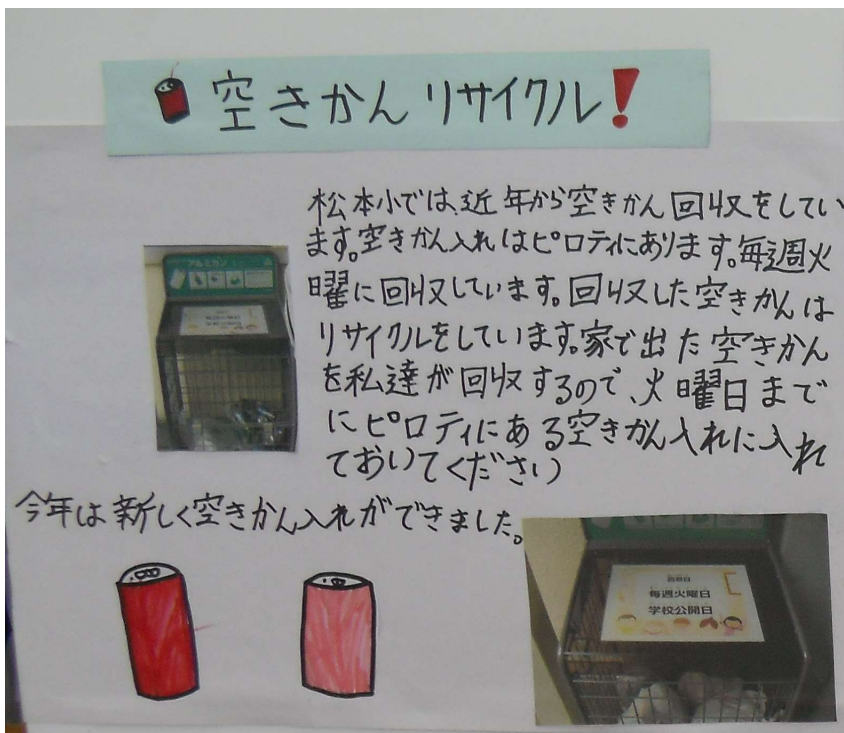 空きかんリサイクル!
松本小では、近年から空きかん回収をしてい
ます。空きかん入れはピロティにあります。毎週火
曜に回収しています。回収した空きかんは
リサイクルをしています。家で出た空きかん
を私達が回収するので、火曜日まで
にピロティにある空きかん入れに入れ
ておいてください
アルミカン
今年は新しく空きかん入れができました。
回収日
毎週火曜日
学校公開日